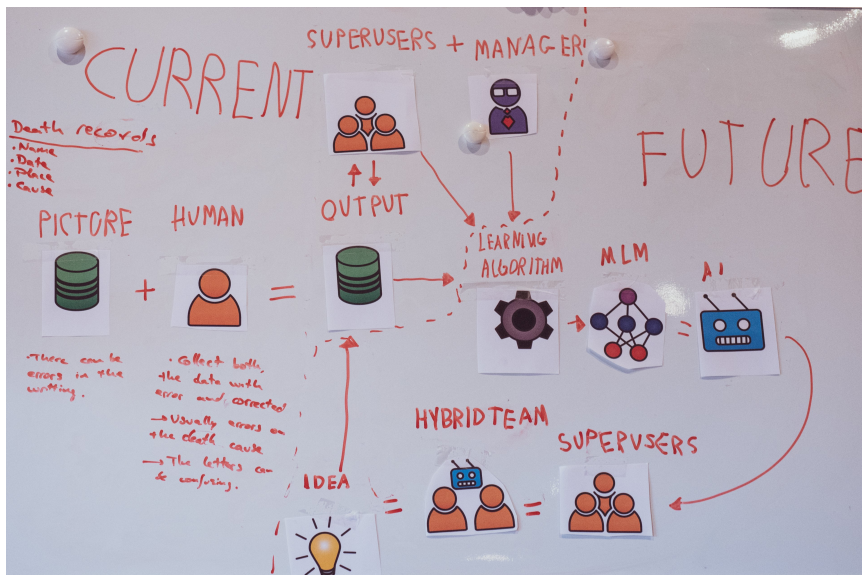 SUPERUSERS + MANAGER
CURRENT
FUTURE
Death records
• Name
• Date
• Place
• Cause
PICTURE
+
HUMAN
=
OUTPUT
LEARNING
ALGORITHM
MLM
=
AI
• There can be
errors in the
writting.
• Collect both,
the data with
error and corrected
→ Usually errors on
the death cause
→ The letters can
be confusing.
IDEA
=
HYBRID TEAM
=
SUPERUSERS